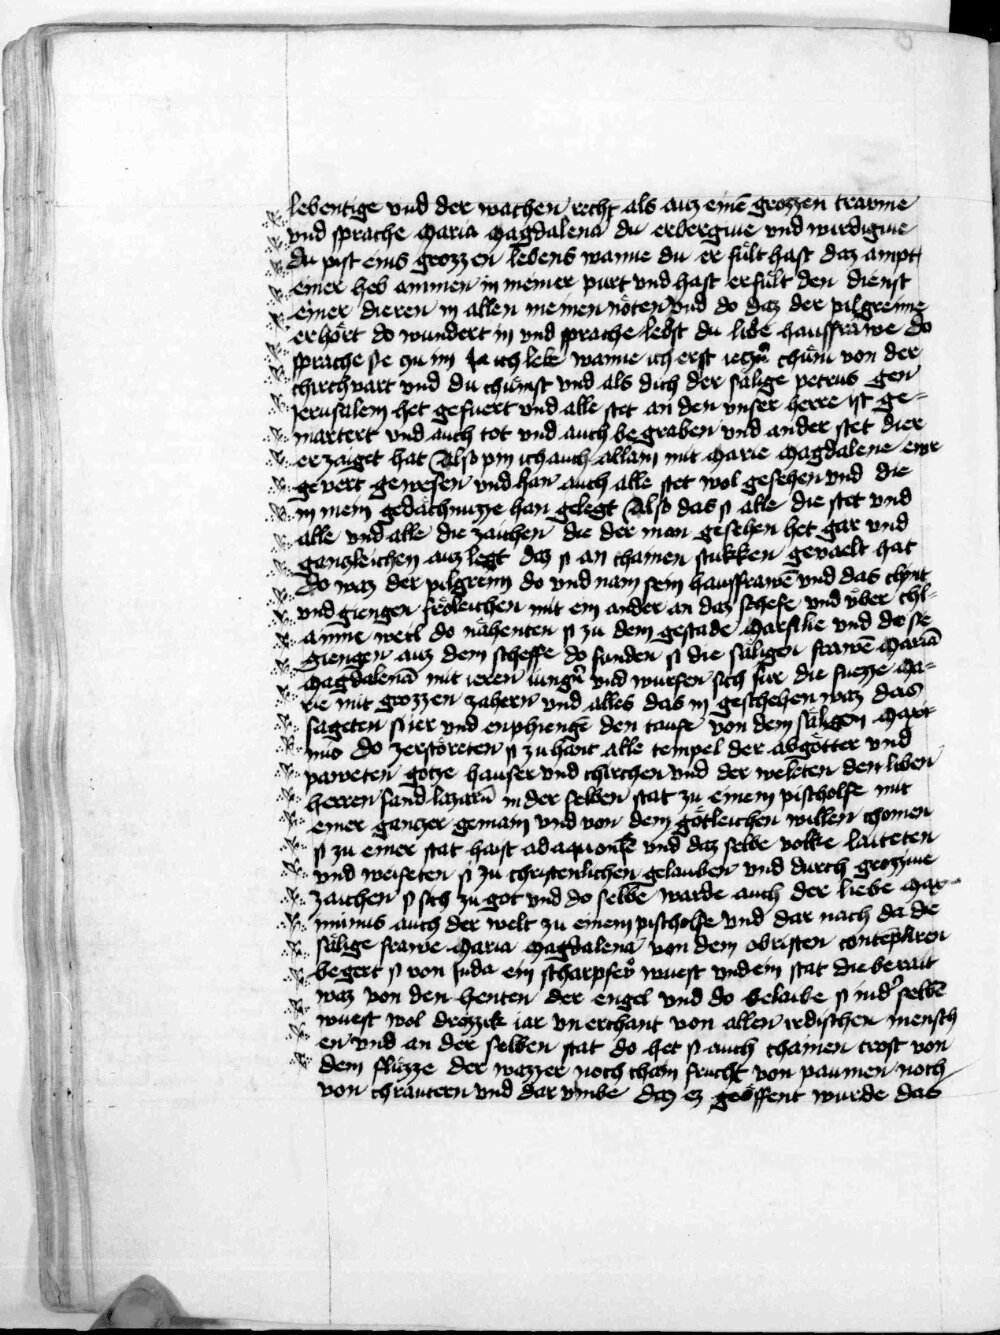 lebentige vnd der wachen recht als auz einē grozzen trawme
vnd sprache Maria Magdalena du erbergiue vnd wirdigiue
du pist eins grozzen lebens wanne du er fült hast daz ampt
einer heb ammen in meiner purt vnd hast erfült den dienst
einer dieren in allen meinen nöten vnd do daz der pilgreime
erhört do wundert in vnd sprache lebst du libe hausfrawe do
sprache sie zu im Ja ich lebe wanne ich erst ieczūt chüm von der
chirchvart vnd du chümst vnd als dich der sälige petrus gen
Jerusalem het gefuert vnd alle stet an den vnser herre ist ge-
martert vnd auch tot vnd auch begraben vnd ander stet dier
er zaiget hat Also pin ich auch allain mit Marie Magdalene ewr
gevert gewesen vnd han auch alle stet wol gesehen vnd die
in mein gedächnuzze han gelegt Also das si alle die stet vnd
alle vnd alle die zaichen die der man gesehen het gar vnd
ganzleichen auz legt daz si an chainen stukken gevaelt hat
Do waz der pilgreim do vnd nam sein hausfrawē vnd das chint
vnd giengen fröleichen mit ein ander an daz scheffe vnd über chl-
ainne weil do nähenten si zu dem gestade Marsilie vnd do sie
giengen auz dem scheffe do funden si die säligen frawē Mariā
Magdalenā mit ieren iungn̄ vnd wurfen sich für die fuezze Ma-
rie mit grozzen zahern vnd alles das in geschehen waz das
sageten si ier vnd enphiengē den taufe von dem säligen Maxi-
mio do zerstöreten si zu hant alle tempel der abgötter vnd
paweten gotze hauser vnd chirchen vnd der weleten den liben
herren sand lazarū in der selben stat zu einem pischolfe mit
einer ganzer gemain vnd von dem götleichen willen chomen
si zu einer stat haist adaquonse vnd daz selbe volke lauteten
vnd weiseten si zu christenlichen gelauben vnd durch grozziue
zaichen si sich zu got vnd do selbē warde auch der liebe Max-
iminus auch der welt zu einem pischolfe vnd dar nach da die
sälige frawe Maria Magdalena von dem obristen contēpliren
begert si von inda ein scharpfev̄ wuest vnd ein stat die berait
waz von den henten der engel vnd do belaibe si in d' selbē
wuest wol drezzik iar vnerchant von allen irdischen mensch
en vnd an der selben stat do het si auch chainen trost von
dem flüzze der wazzer noch chain frucht von paumen noch
von chräutern vnd dar vmbe daz ez geöffent wurde das